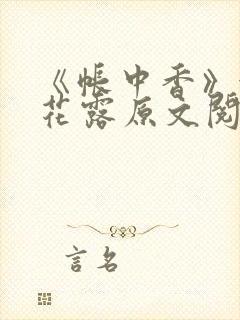 《帐中香》
花露原文阅
言名